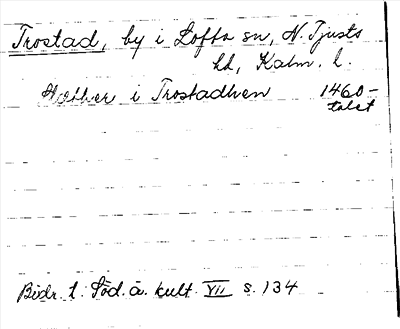 Trostad, by i Lofta sn, N. Tjusts
hd, Kalm. l.
i Trostadhen 1460-
talet
Bidr. t. Söd. ä. kult. VII s. 134